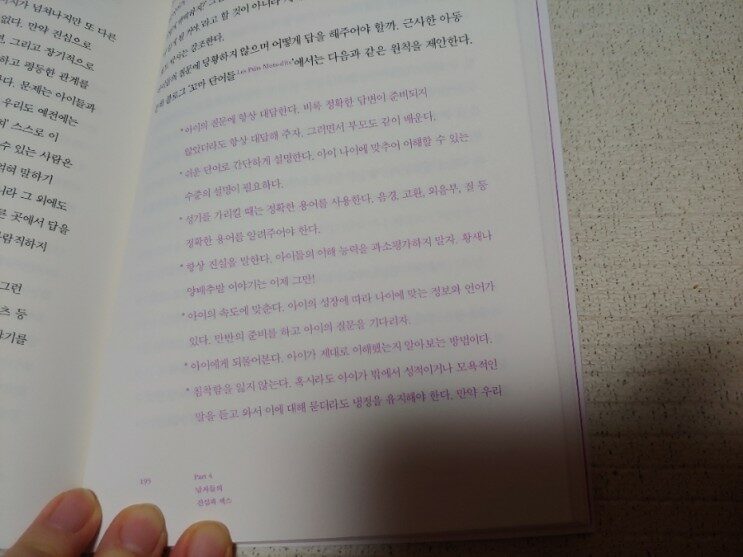 넘쳐나지만 또 다른
없다. 만약 진심으로
그리고 장기적으로
하고 평등한 관계를
문제는 아이들과
우리도 예전에는
스스로 이
수 있는 사람은
말하기
그 외에도
곳에서 답을
람직하지
그런
츠 등
기를
강조한다.
질문에 당황하지 않으며 어떻게 답을 해주어야 할까. 근사한 아동
블로그 '꼬마 단어들'에서는 다음과 같은 원칙을 제안한다.
* 아이의 질문에 항상 대답한다. 비록 정확한 답변이 준비되지
않았더라도 항상 대답해 주자. 그러면서 부모도 같이 배운다.
* 쉬운 단어로 간단하게 설명한다. 아이 나이에 맞추어 이해할 수 있는
수준의 설명이 필요하다.
* 성기를 가리킬 때는 정확한 용어를 사용한다. 음경, 고환, 외음부, 질 등
정확한 용어를 알려주어야 한다.
* 항상 진실을 말한다. 아이들의 이해 능력을 과소평가하지 말자. 황새나
양배추밭 이야기는 이제 그만!
* 아이의 속도에 맞춘다. 아이의 성장에 따라 나이에 맞는 정보와 언어가
있다. 만반의 준비를 하고 아이의 질문을 기다리자.
* 아이에게 되물어본다. 아이가 제대로 이해했는지 알아보는 방법이다.
* 침착함을 잃지 않는다. 혹시라도 아이가 밖에서 성적이거나 모욕적인
말을 듣고 와서 이에 대해 묻더라도 냉정을 유지해야 한다. 만약 우리
195
Part 4
남자들의
진실과 섹스